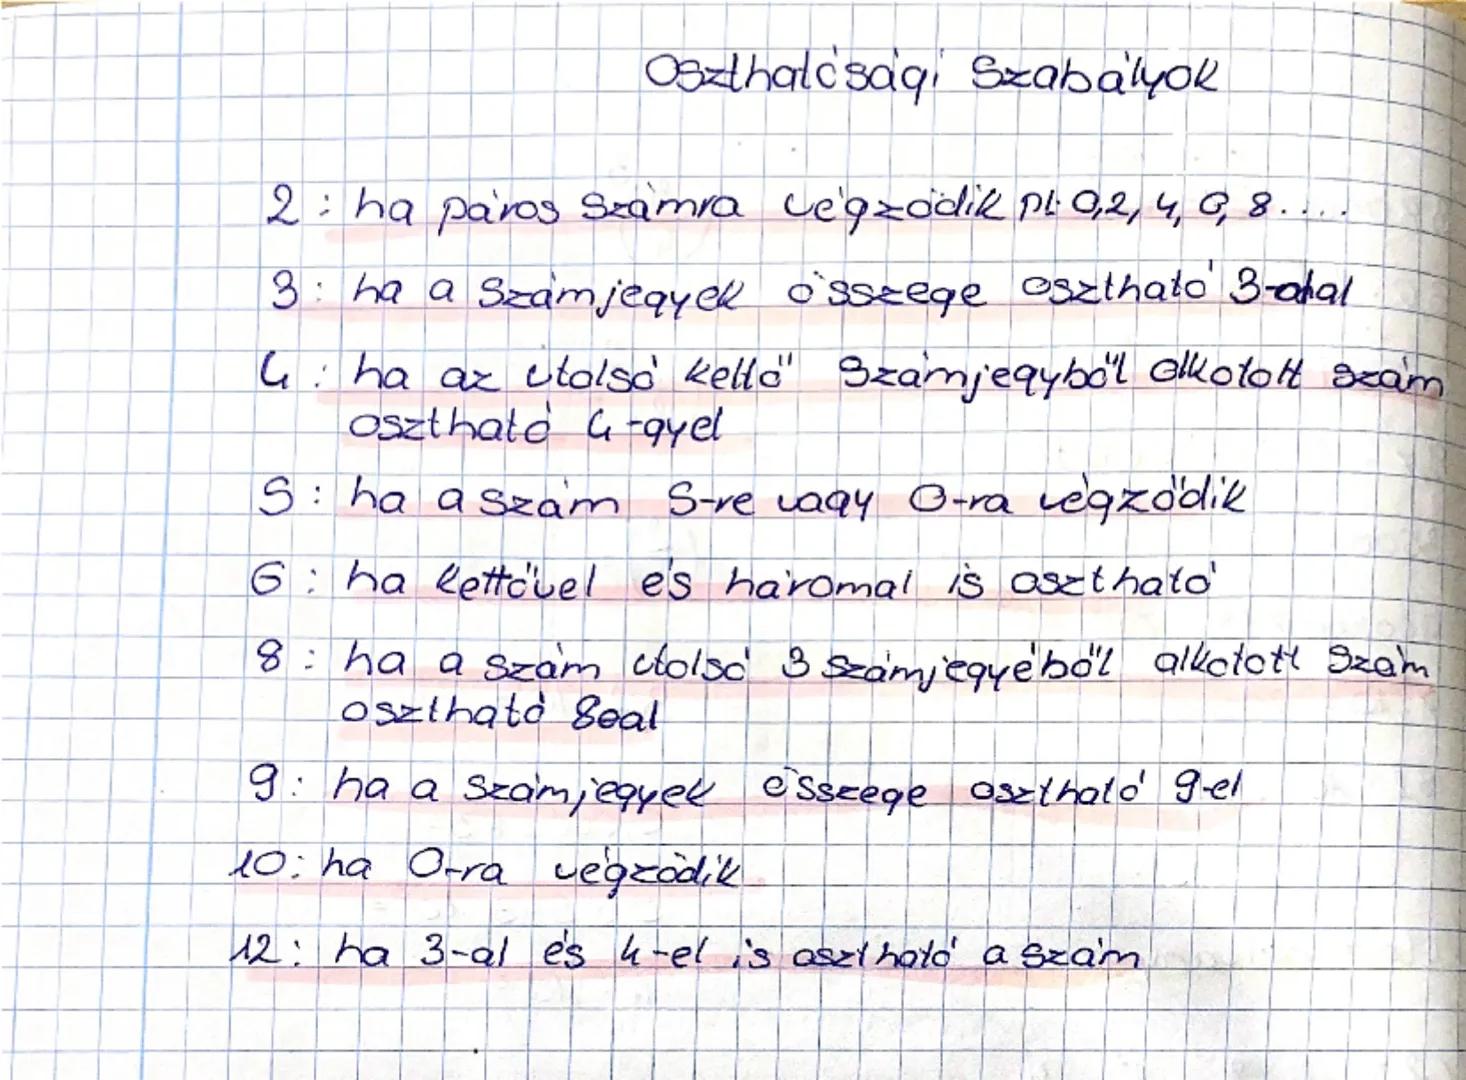 Oszthatósági Szabályok
2: ha páros számra végződik pl. 0,2,4,6,8....
3: ha a számjegyek összege osztható 3-al
4: ha az utolsó kettő számjegyből alkotott szám
osztható 4-gyel
5: ha a szám 5-re vagy 0-ra végződik
6: ha kettővel és háromal is osztható
8: ha a szám utolsó 3 számjegyéből alkotott szám
osztható 8-al
9: ha a számjegyek összege osztható 9-el
10: ha 0-ra végződik
12: ha 3-al és 4-el is osztható a szám